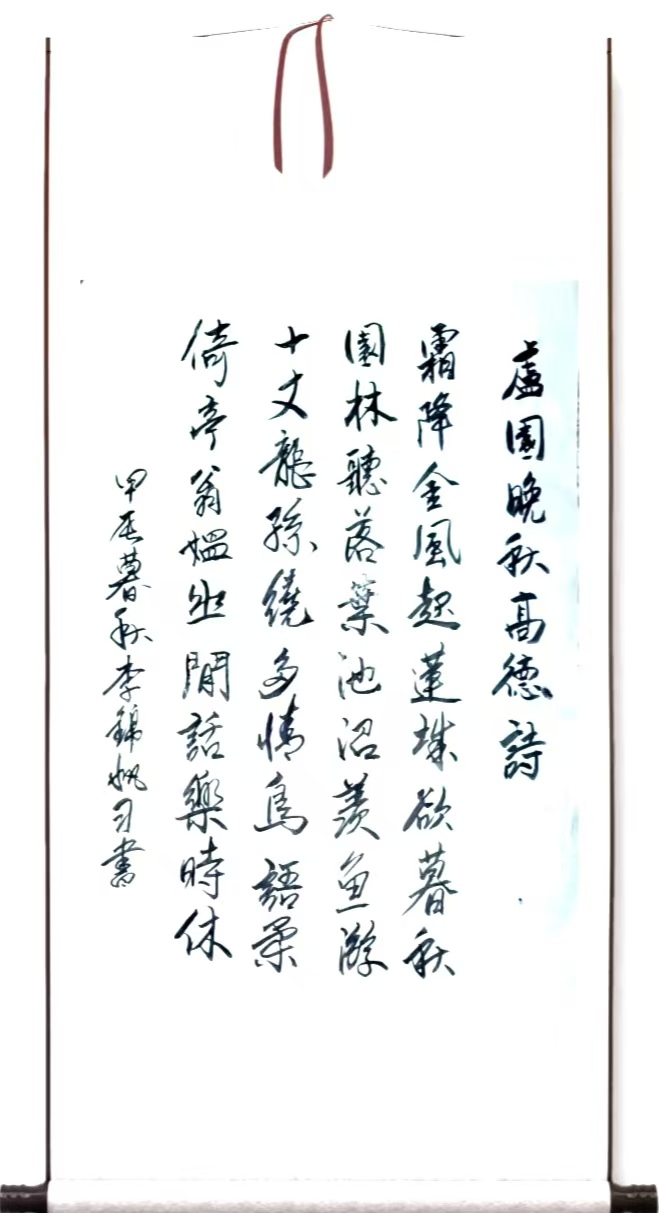 盧園晚秋高德詩
霜降金風起蓬城欲暮秋
園林聽落葉池沼羨魚游
十丈龍孫繞多情鳥語柔
倚亭翁媼坐閒話樂時休
甲辰暮秋李錦帆习書